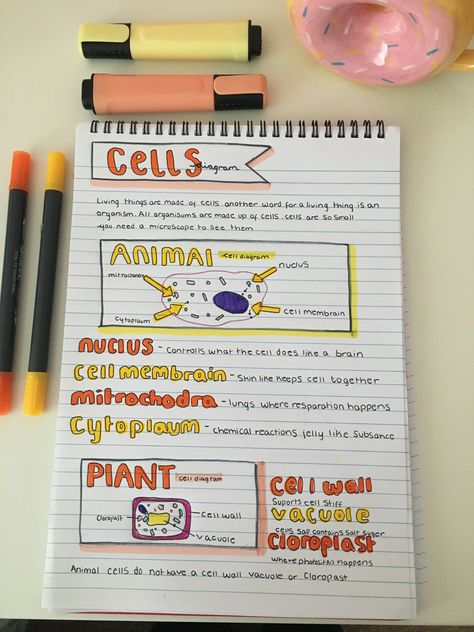 CELLS diagram
Living things are made of cells another word for a living thing is an
organism. All organisums are made up of cells. cells are so small
you need a microscope to see them
ANIMAl cell diagram
mitrochondria
nuclus
cytoplaum
cell membrain
nuclus - controlls what the cell does like a brain
cell membrain - skin like keeps cell together
mitrochodra - lungs where resparation happens
cytoplaum - chemical reactions jelly like subsance
PlANT cell diagram
cloroplast
cell wall
vacuole
cell wall
suports cell stiff
vacuole
cells sap contains salt suger
cloroplast
where happens
Animal cells do not have a cell wall vacuole or cloropast